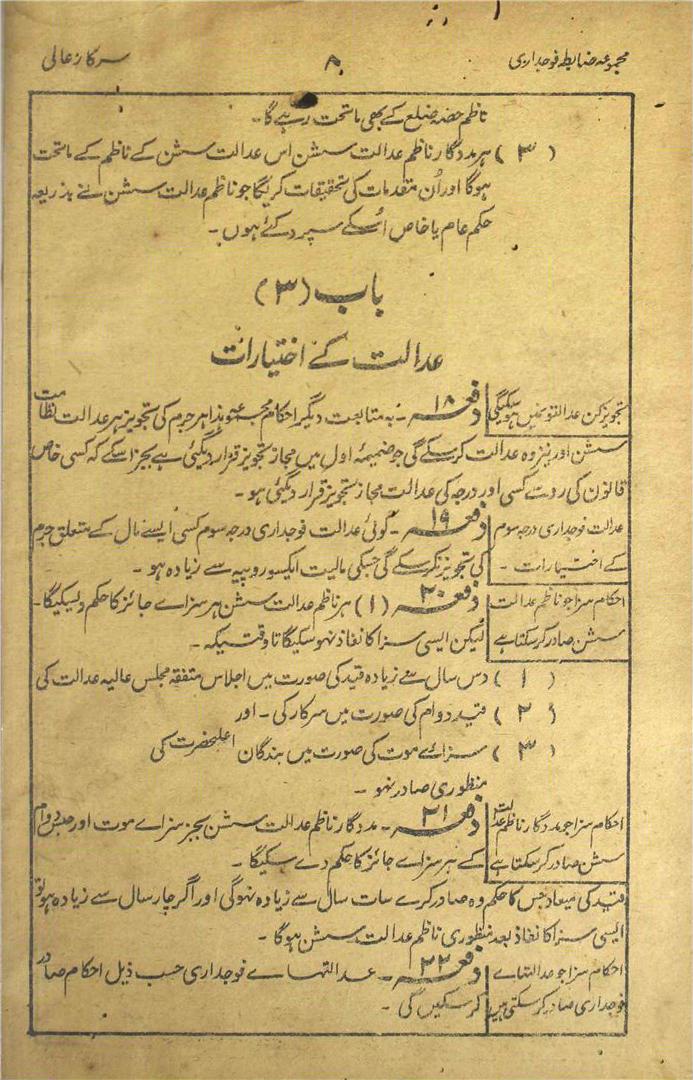 مجموعہ ضابطہ فوجداری
۸
سرکار عالی
ناظم حصہ ضلع کے بھی ماتحت رہے گا۔
( ۳ ) ہر مددگار ناظم عدالت سشن اس عدالت سشن کے ناظم کے ماتحت
ہوگا اور اُن مقدمات کی تحقیقات کریگا جو ناظم عدالت سشن نے بذریعہ
حکم عام یا خاص اُسکے سپرد کئے ہوں۔
باب (۳)
عدالت کے اختیارات
تجویز کن عدالتوں میں ہوسکیگی
دفعہ ۱۸۔ بہ متابعت دیگر احکام مجموعہ ہذا ہر جرم کی تجویز ہر عدالت نظامت
سشن اور نیز وہ عدالت کرسکے گی جو ضیمۂ اول میں مجاز تجویز قرار دیگئی ہے بجز اسکے کہ کسی خاص
قانون کی روسے کسی اور درجہ کی عدالت مجاز تجویز قرار دیگئی ہو۔
عدالت فوجداری درجہ سوم
کے اختیارات۔
دفعہ ۱۹۔ کوئی عدالت فوجداری درجہ سوم کسی ایسے مال کے متعلق جرم
کی تجویز نکرسکے گی جسکی مالیت ایکسو روپیہ سے زیادہ ہو۔
احکام سزا جو ناظم عدالت
سشن صادر کرسکتا ہے
دفعہ ۲۰۔ (۱) ہر ناظم عدالت سشن ہر سزاے جائز کا حکم دیسکیگا۔
لیکن ایسی سزا کا نفاذ نہو سکیگا تاوقتیکہ۔
( ۱ ) دس سال سے زیادہ قید کی صورت میں اجلاس متفقہ مجلس عالیہ عدالت کی
( ۲ ) قید دوام کی صورت میں سرکار کی۔ اور
( ۳ ) سزائے موت کی صورت میں بندگان اعلیحضرت کی
منظوری صادر نہو۔
احکام سزا جو مددگار ناظم عدالت
سشن صادر کرسکتا ہے
دفعہ ۲۱۔ مددگار ناظم عدالت سشن بجز سزاے موت اور حبس دوام
کے ہر سزاے جائز کا حکم دے سکیگا۔
قید کی میعاد جس کا حکم وہ صادر کرے سات سال سے زیادہ نہوگی اور اگر چار سال سے زیادہ ہو تو
ایسی سزا کا نفاذ بعد منظوری ناظم عدالت سشن ہوگا۔
احکام سزا جو عدالتہاے
فوجداری صادر کرسکتی ہیں
دفعہ ۲۲۔ عدالتہاے فوجداری حسب ذیل احکام صادر
کرسکیں گی۔